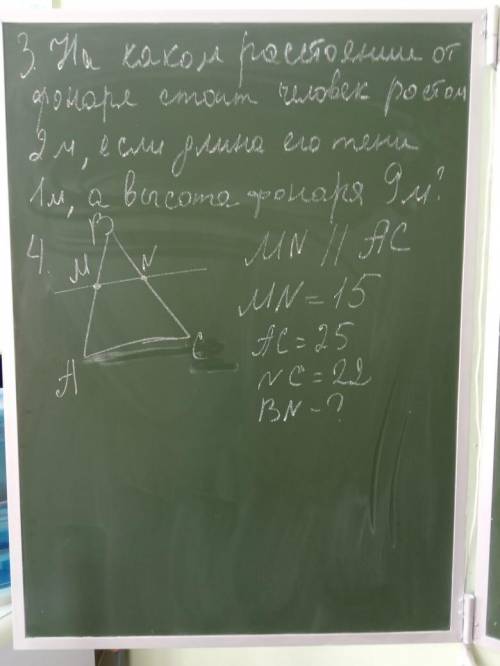 3. На каком расстоянии от
фонаря стоит человек ростом
2м, если длина его тени
1м, а высота фонаря 9м?
4.
B
M
N
A
C
MN || AC
MN = 15
AC = 25
NC = 22
BN - ?